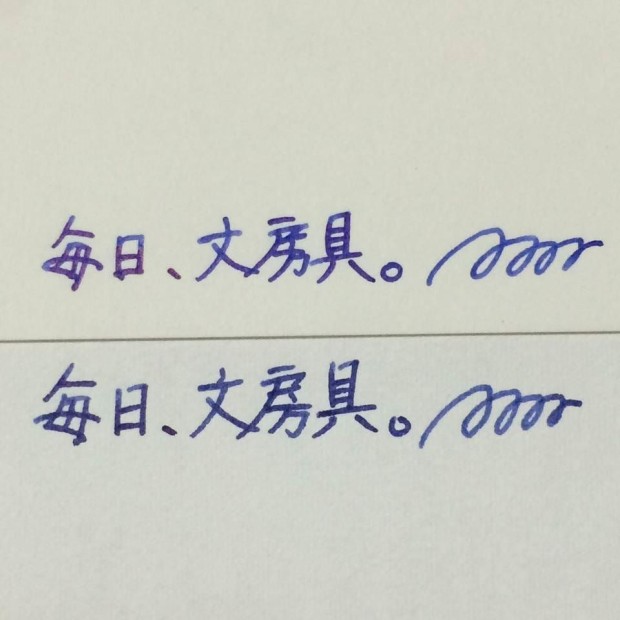 毎日、文房具。
毎日、文房具。